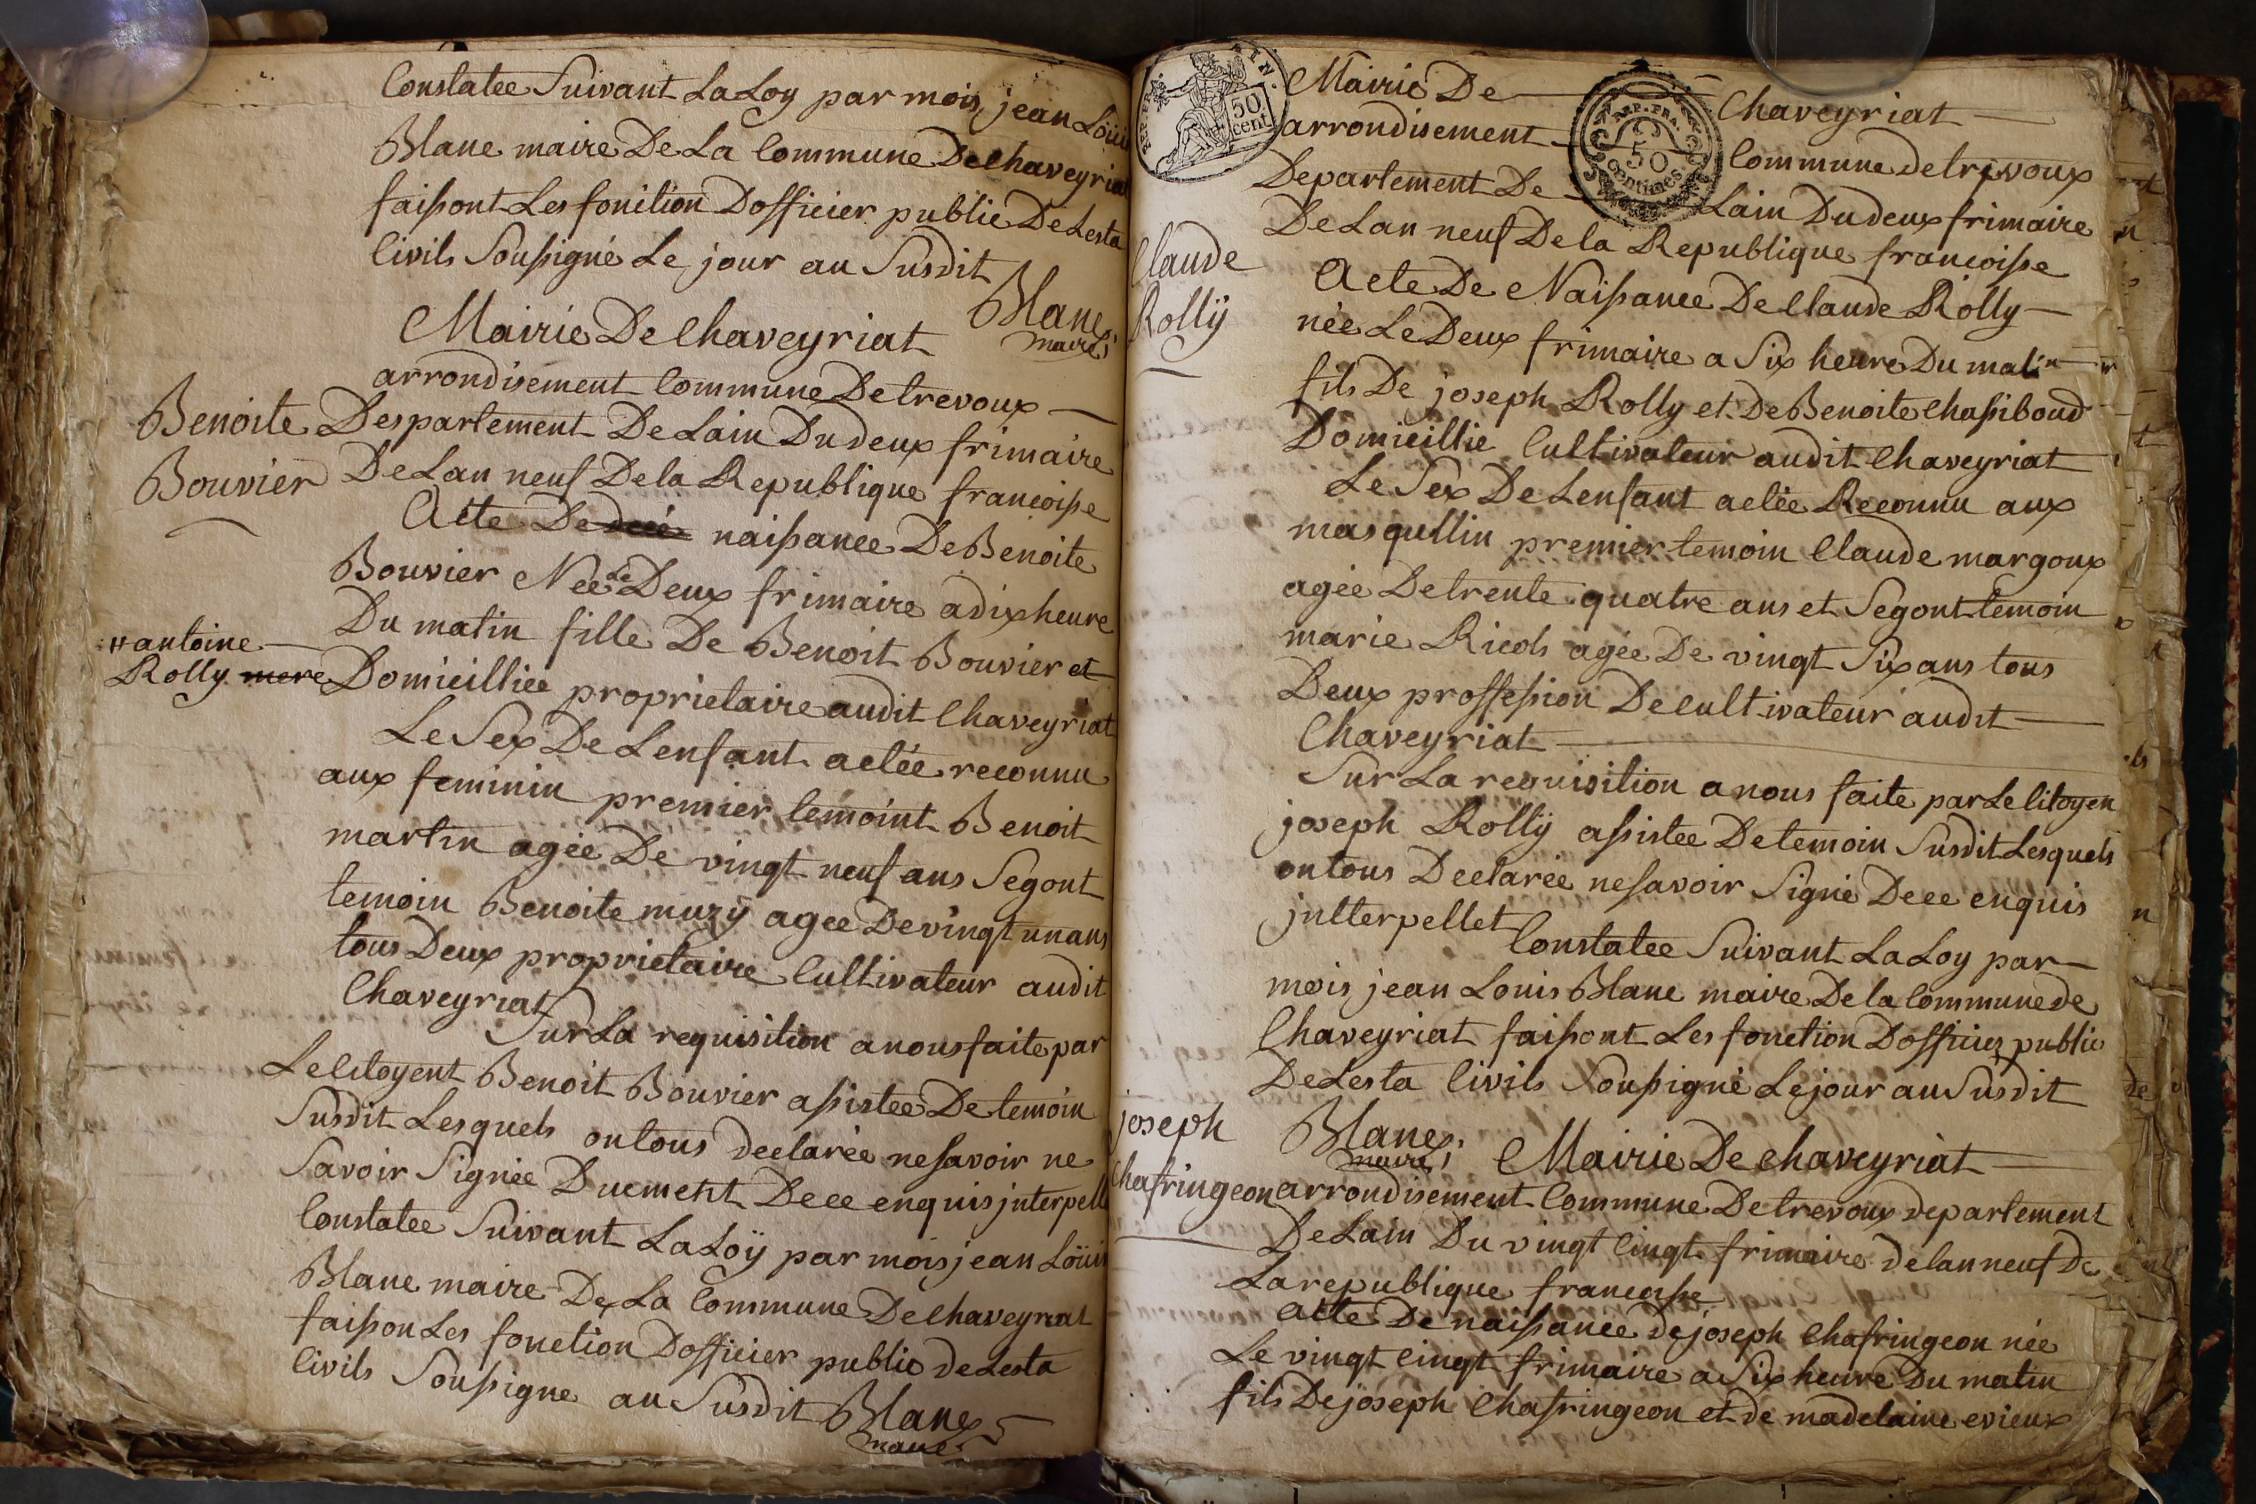 Constatee Suivant La Loy par mois jean Loüis
Blanc maire De La Commune De Chaveyriat
faissont Les fonition Dofficier public De Lesta
Civils Soussigné Le jour au Susdit
Blanc
maire
Mairie De Chaveyriat
arrondisement Commune De trevoux
Benoite
Bouvier
Despartement De Lain Du deux frimaire
De Lan neuf De la Republique francoisse
Acte De naissance De Benoite
Bouvier Nee le Deux frimaire a dix heure
Du matin fille De Benoit Bouvier et
antoine
Rolly mere
Domicilliee proprietaire audit Chaveyriat
Le Sex De Lenfant a etée reconnu
aux feminin premier temoint Benoit
martin agée De vingt neuf ans Segont
temoin Benoite muzÿ agee De vingt un ans
tous Deux proprietaire Cultivateur audit
Chaveyriat
Sur La requisition a nous faite par
Le Citoyent Benoit Bouvier assistee De temoin
Susdit Lesquels on tous declarée ne savoir ne
Savoir Signée Ducment De ce enquis jnterpelle
Constatee Suivant La Loÿ par mois jean Loüis
Blanc maire De La Commune De Chaveyriat
faisson Les fonction Dofficier public de Lesta
Civils Soussigne au Susdit Blanc
maire
50
cent
Mairie De Chaveyriat
REP. FRA.
50
centimes
arrondisement Commune de trevoux
Departement De Lain Du deux frimaire
De Lan neuf De la Republique francoisse
Claude
Rollÿ
Acte De Naissance De Claude Rolly
née Le Deux frimaire a Six heure Du matin
fils De joseph Rolly et De Benoite Chassiboud
Domicillie Cultivateur audit Chaveyriat
Le Sex De Lenfant a etée Reconnu aux
masqullin premier temoin Claude margoux
agée De trente quatre ans et Segont temoin
marie Ricols agée De vingt Six ans tous
Deux proffession De Cultivateur audit
Chaveyriat
Sur La requisition a nous faite par Le Citoyen
joseph Rollÿ assistee De temoin Susdit Lesquels
on tous Declarée ne savoir Signé De ce enquis
jntterpellet
Constatee Suivant La Loy par
mois jean Louis Blanc maire De la Commune de
Chaveyriat faissont Les fonction Dofficier public
De Lesta Civils Soussigné Le jour au Susdit
Blanc
maire
joseph
Chafringeon
Mairie De Chaveyriat
arrondisement Commune De trevoux departement
De Lain Du vingt Cingt frimaire de lan neuf De
La republique francoisse
Acte De naissance de joseph Chafringeon née
Le vingt Cingt frimaire a Six heure Du matin
fils De joseph Chafringeon et de madelaine evieux